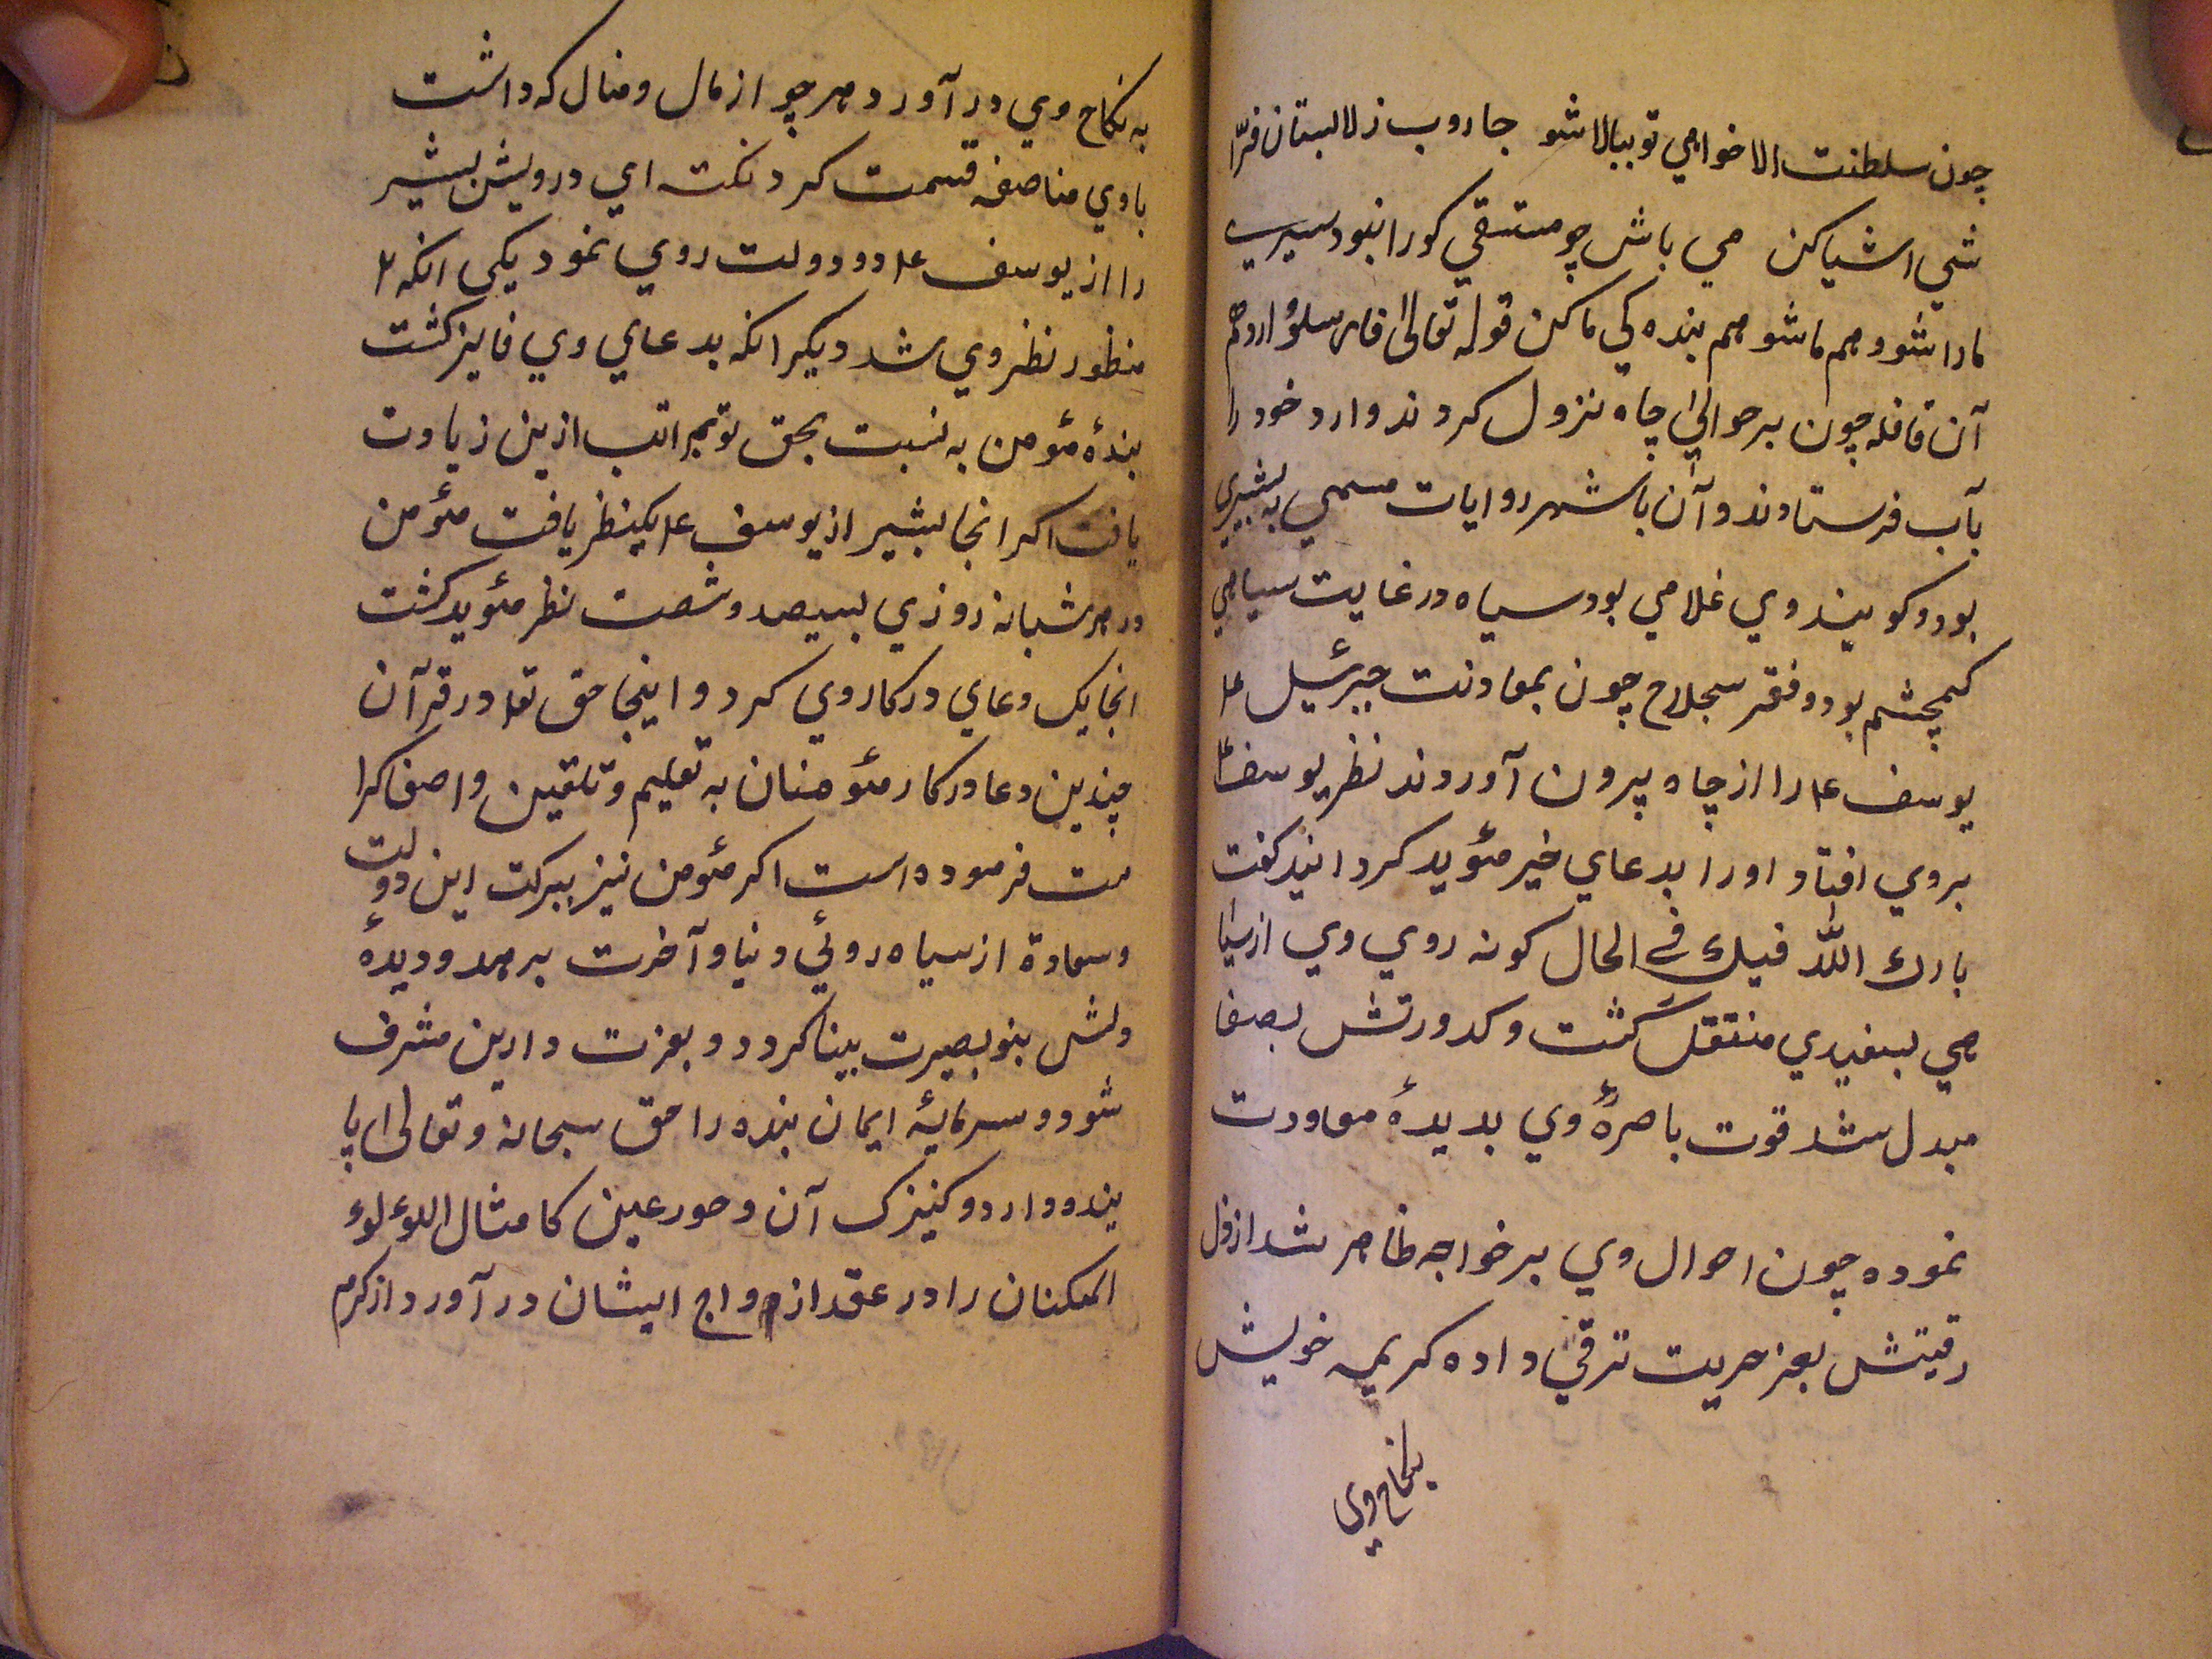 چون سلطنت الا خواهي تو ببالا شو جاروب ز لا بستان فرّا
شي اشيا كن مي باش چو مستسقي كورا نبود سيري
مارا شو و هم ما شو هم بنده كي ما كن قوله تعالى فارسلوا واردهم
آن قافله چون بر حوالئ چاه نزول كردند وارد خود را
بآب فرستادند و آن باشهر روايات مسمي به بشيري
بود و كويند وي غلامي بود سياه در غايت سياهي
كمچشم بود و فقر چون بمعاونت جبرئيل ع
يوسف ع را از چاه بيرون آوردند نظر يوسف ع
بروي افتاد اورا بدعاي خير مئويد كردانيد كفت
بارك الله فيك في الحال كونه روي وي از سيا
هي بسفيدي منتقل كشت و كدورتش بصفا
مبدل شد قوت باصرهٔ وي بديدهٔ معاودت
نموده چون احوال وي بر خواجه ظاهر شد از ذل
رقيتش بعز حريت ترقي داده كريمه خويش
بنكاح وي
به نكاح وي در آورد هر چو از مال و منال كه داشت
باوي مناصفه قسمت كرد نكته اي درويش بشير
را از يوسف ع دو دولت روي نمود يكي انكه
منظور نظر وي شد ديكر انكه بدعاي وي فايز كشت
بندهٔ مئومن به نسبت بحق تو بمراتب ازين زيادت
يافت اكر انجا بشير از يوسف ع يكنظر يافت مئومن
در هر شبانه روزي بسيصد و شصت نظر مئويد كشت
انجا يك دعاي در كار وي كرد و اينجا حق تع در قرآن
چندين دعا در كار مئومنان به تعليم و تلقين واصف كرا
مت فرموده است اكر مئومن نيز ببركت اين دولت
و سعادة از سياه روئي دنيا و آخرت برهد و ديدهٔ
دلش بنو بصيرت بينا كردد و بعزت دارين مشرف
شود و سرمايهٔ ايمان بنده را حق سبحانه و تعالى پا
ينده دارد و كنيزك آن و حور عين كامثال اللوء لوء
المكنان را در عقد ازواج ايشان در آورد از كرم